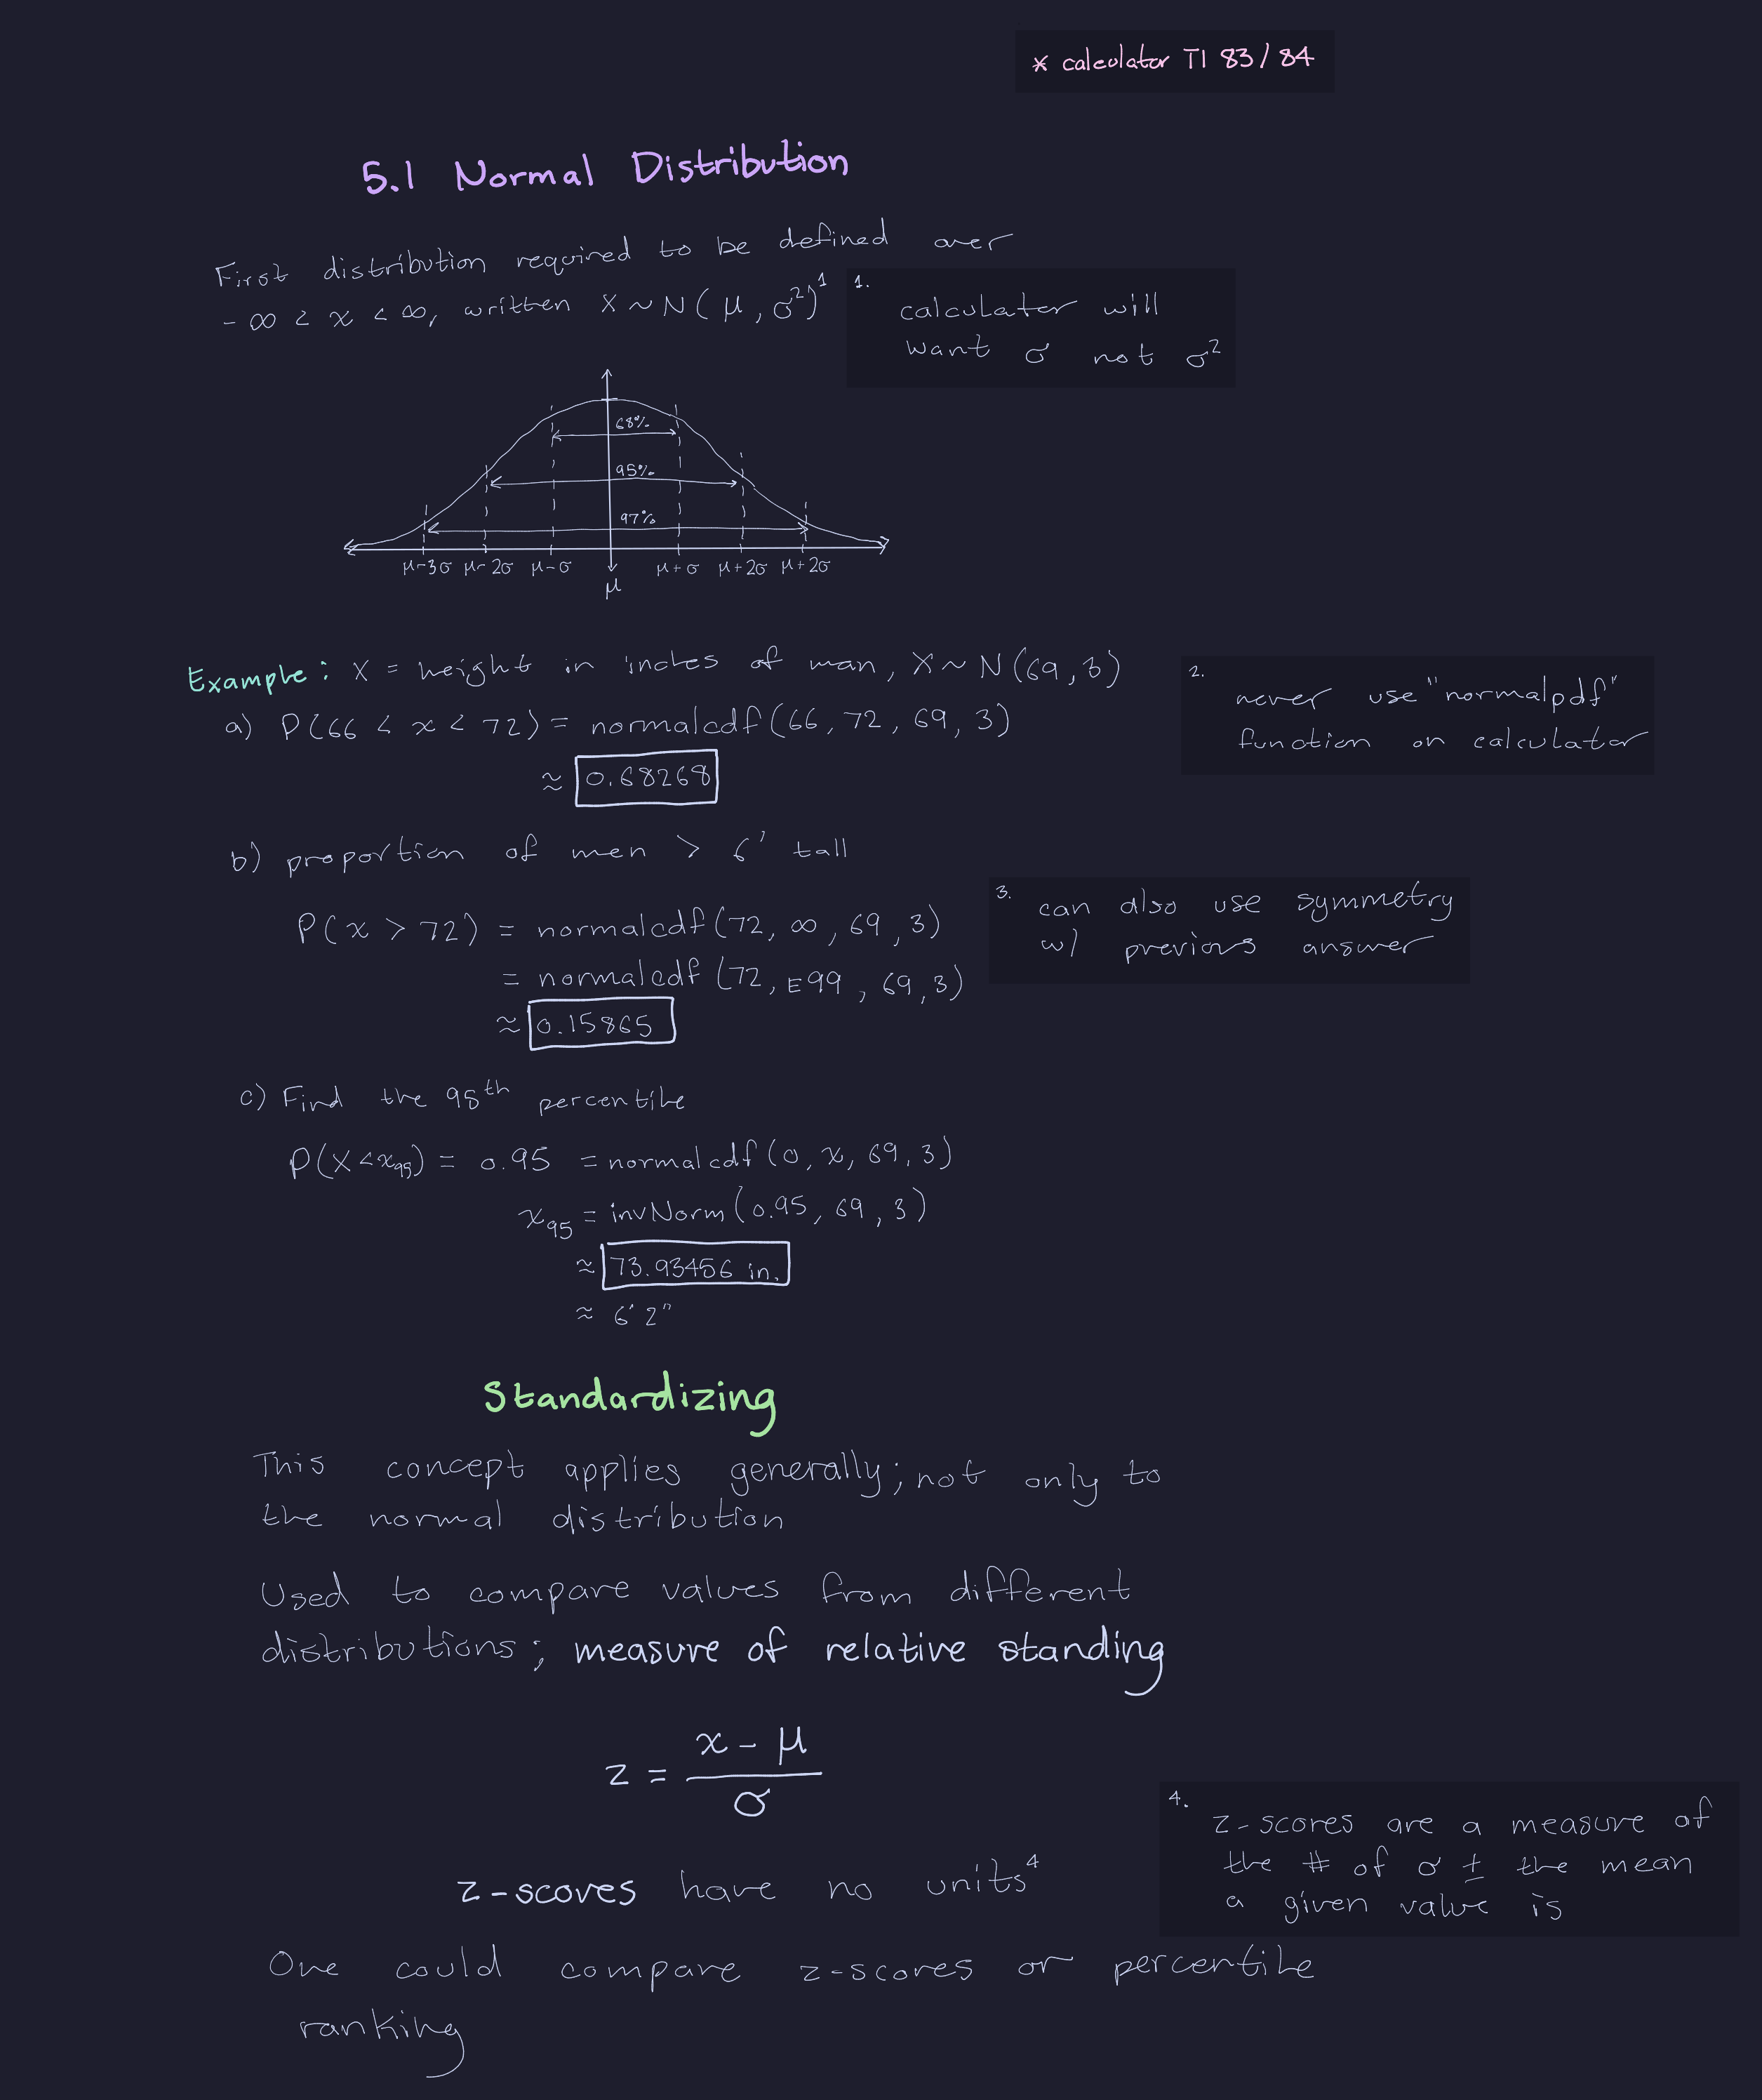 * calculator TI 83/84
5.1 Normal Distribution
First distribution required to be defined over
-∞ < x < ∞, written X ~ N(μ, σ²)¹
1. calculator will
want σ not σ²
68%
95%
97%
μ-3σ μ-2σ μ-σ μ+σ μ+2σ μ+2σ
μ
Example: X = height in inches of man, X ~ N(69, 3)
a) P(66 < x < 72) = normalcdf(66, 72, 69, 3)
≈ 0.68268
2. never use "normalpdf"
function on calculator
b) proportion of men > 6' tall
P(x > 72) = normalcdf(72, ∞, 69, 3)
= normalcdf(72, E99, 69, 3)
≈ 0.15865
3. can also use symmetry
w/ previous answer
c) Find the 95th percentile
P(X < x₉₅) = 0.95 = normalcdf(0, x, 69, 3)
x₉₅ = invNorm(0.95, 69, 3)
≈ 73.93456 in.
≈ 6'2"
Standardizing
This concept applies generally; not only to
the normal distribution
Used to compare values from different
distributions; measure of relative standing
z = (x - μ) / σ
z-scores have no units⁴
4. z-scores are a measure of
the # of σ ± the mean
a given value is
One could compare z-scores or percentile
ranking